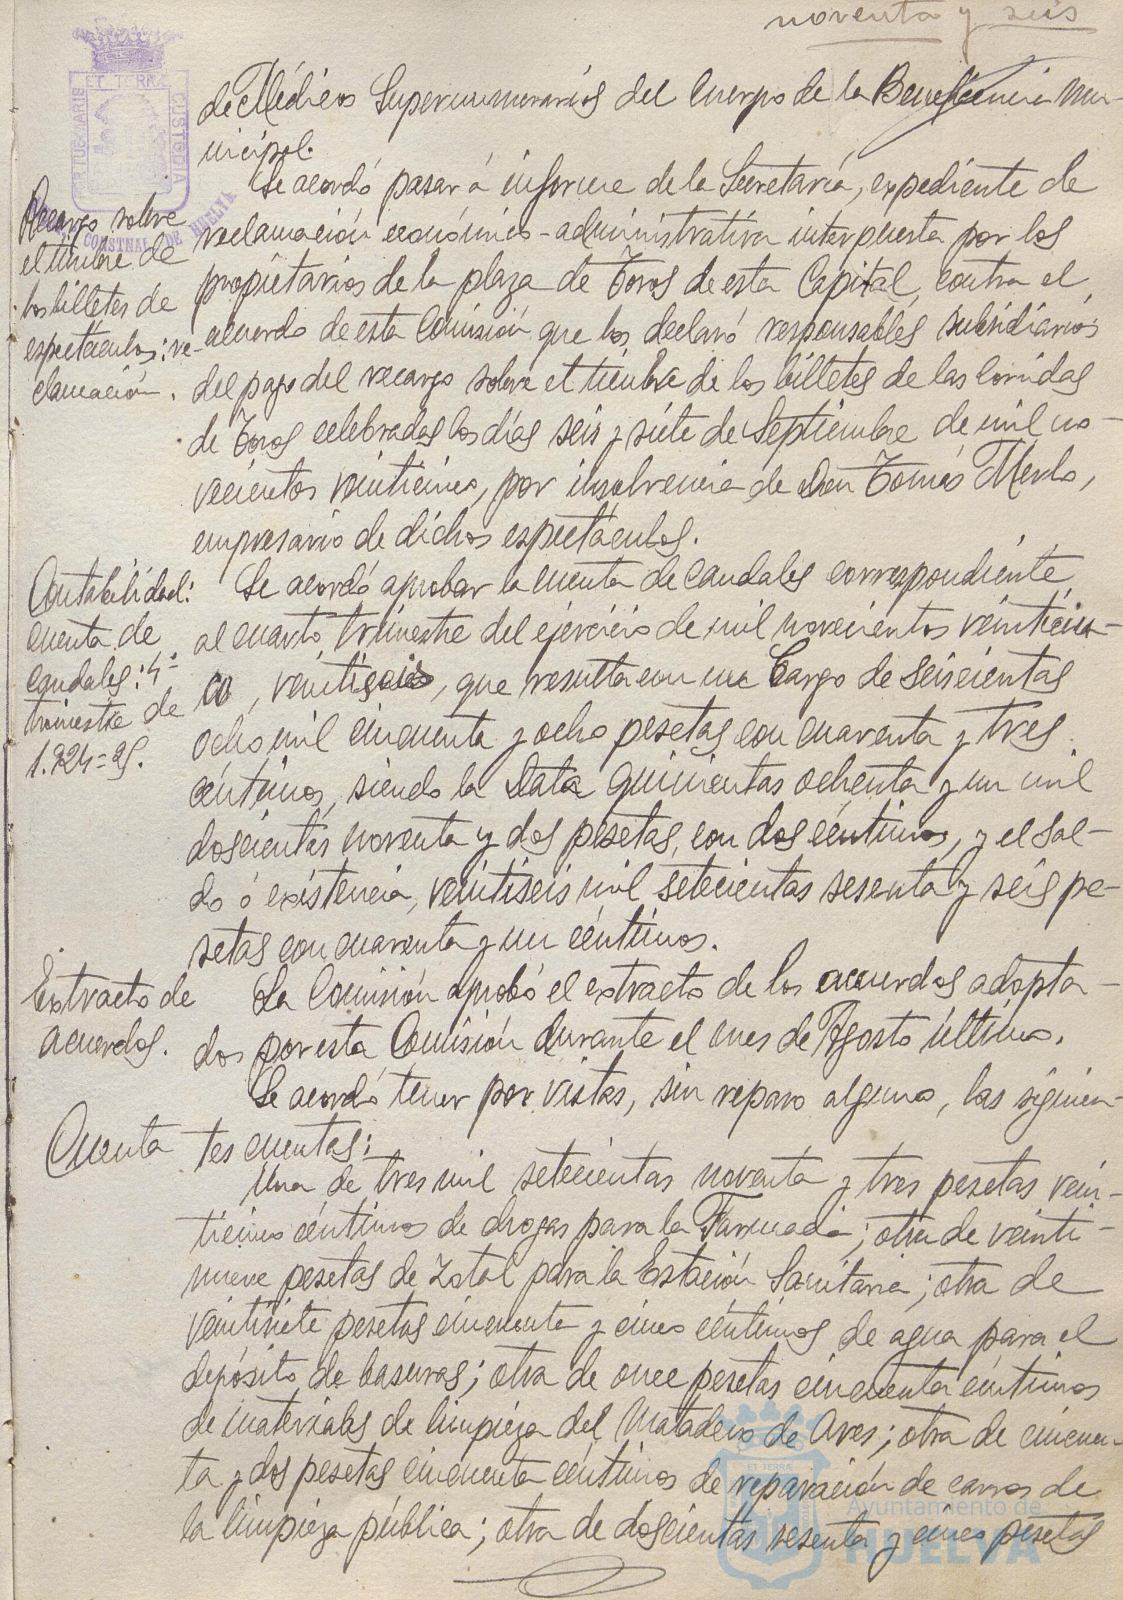 noventa y seis
de Médicos Supernumerarios del Cuerpo de la Beneficencia Mu-
nicipal.
Se acordó pasar á informe de la Secretaría, expediente de
reclamación económico-administrativa interpuesta por los
propietarios de la plaza de Toros de esta Capital, contra el
acuerdo de esta Comisión que los declaró responsables subsidiarios
del pago del recargo sobre el timbre de los billetes de las corridas
de Toros celebradas los días seis y siete de Septiembre de mil no-
vecientos veinticinco, por insolvencia de Don Tomás Merlo,
empresario de dichos espectáculos.
Recargo sobre
el timbre de
los billetes de
espectáculos: re-
clamación.
Se acordó aprobar la cuenta de caudales correspondiente
al cuarto trimestre del ejercicio de mil novecientos veinticin-
co, veintiseis, que resulta con un Cargo de seiscientas
ocho mil cincuenta y ocho pesetas con cuarenta y tres
céntimos, siendo la Data quinientas ochenta y un mil
doscientas noventa y dos pesetas, con dos céntimos, y el sal-
do ó existencia, veintiseis mil setecientas sesenta y seis pe-
setas con cuarenta y un céntimos.
Contabilidad:
cuenta de
caudales: 4º
trimestre de
1.924=25.
La Comisión aprobó el extracto de los acuerdos adopta-
dos por esta Comisión durante el mes de Agosto último.
Extracto de
acuerdos.
Se acordó tener por vistas, sin reparo alguno, las siguien-
tes cuentas:
Cuenta
Una de tres mil setecientas noventa y tres pesetas vein-
ticinco céntimos de drogas para la Farmacia; otra de veinti-
nueve pesetas de Zotal para la Estación Sanitaria; otra de
veintisiete pesetas cincuenta y cinco céntimos de agua para el
depósito de basuras; otra de once pesetas cincuenta céntimos
de materiales de limpieza del Matadero de Aves; otra de cincuen-
ta y dos pesetas cincuenta céntimos de reparación de carros de
la limpieza pública; otra de doscientas sesenta y cinco pesetas
ET TERRÆ
CUSTODIA
CONSTNAL DE HUELVA
Ayuntamiento de
HUELVA